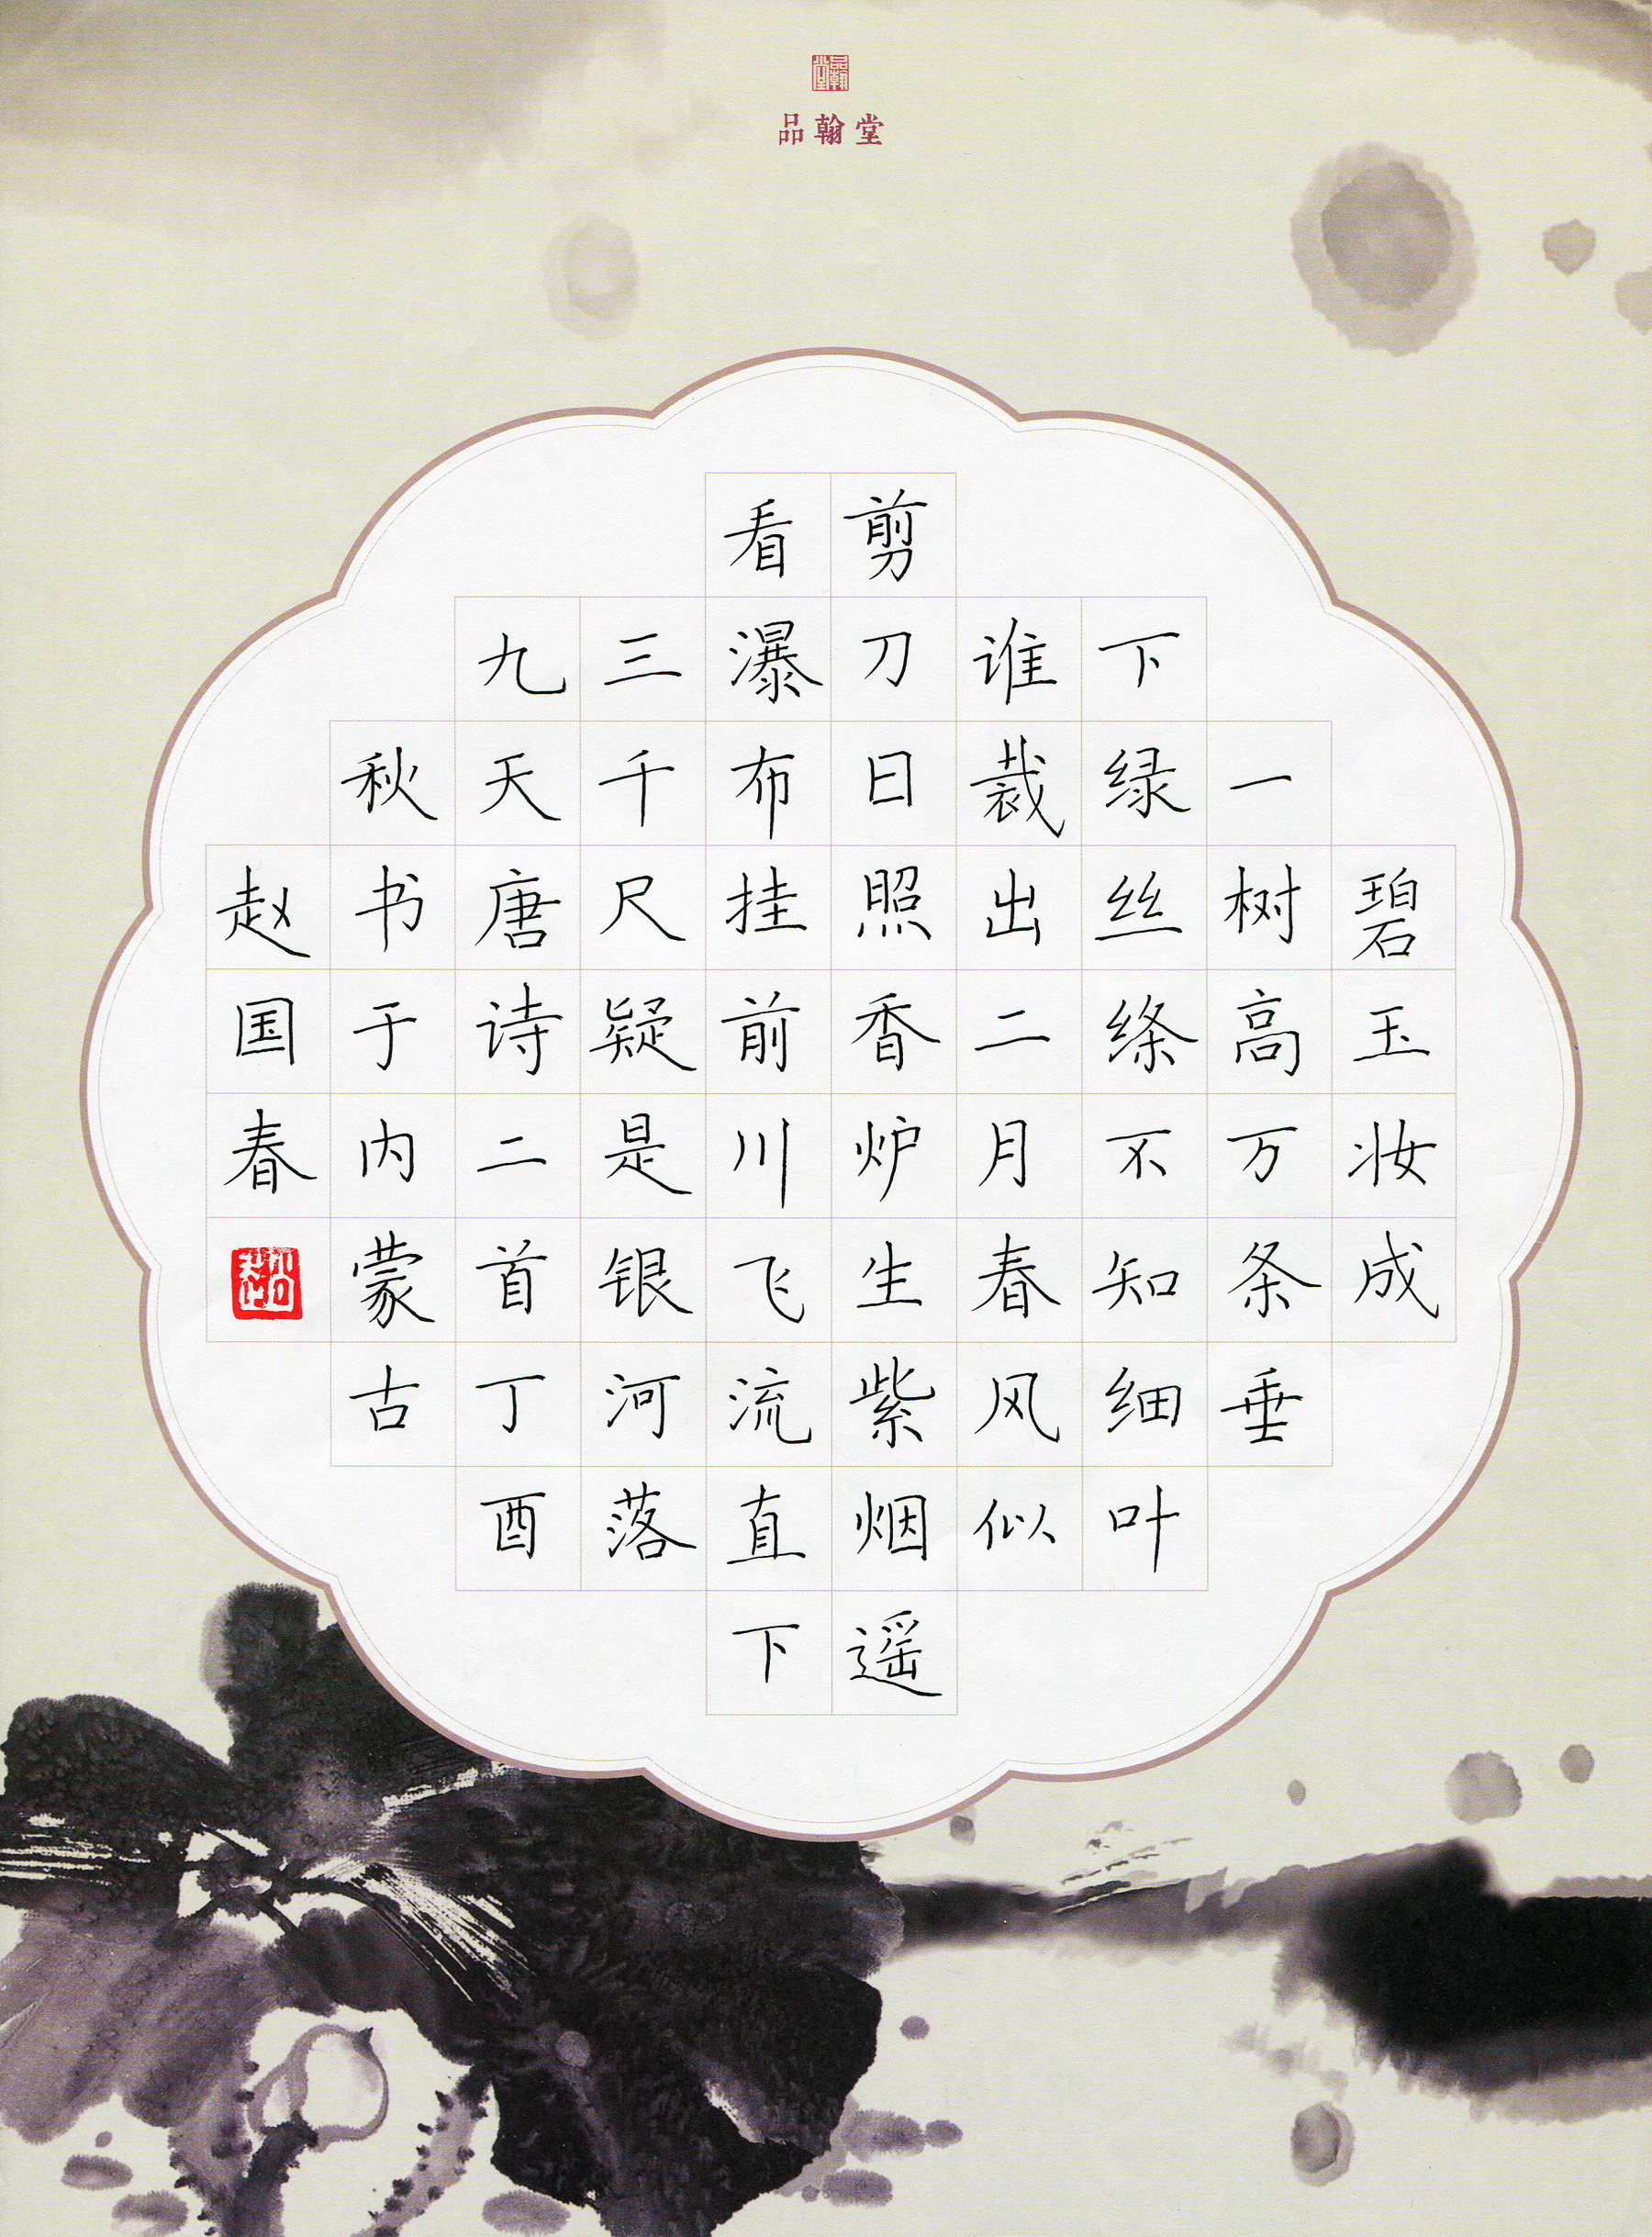 品翰堂
品翰堂
碧玉妆成
一树高万条垂
下绿丝绦不知细叶
谁裁出二月春风似
剪刀日照香炉生紫烟遥
看瀑布挂前川飞流直下
三千尺疑是银河落
九天唐诗二首丁酉
秋书于内蒙古
赵国春